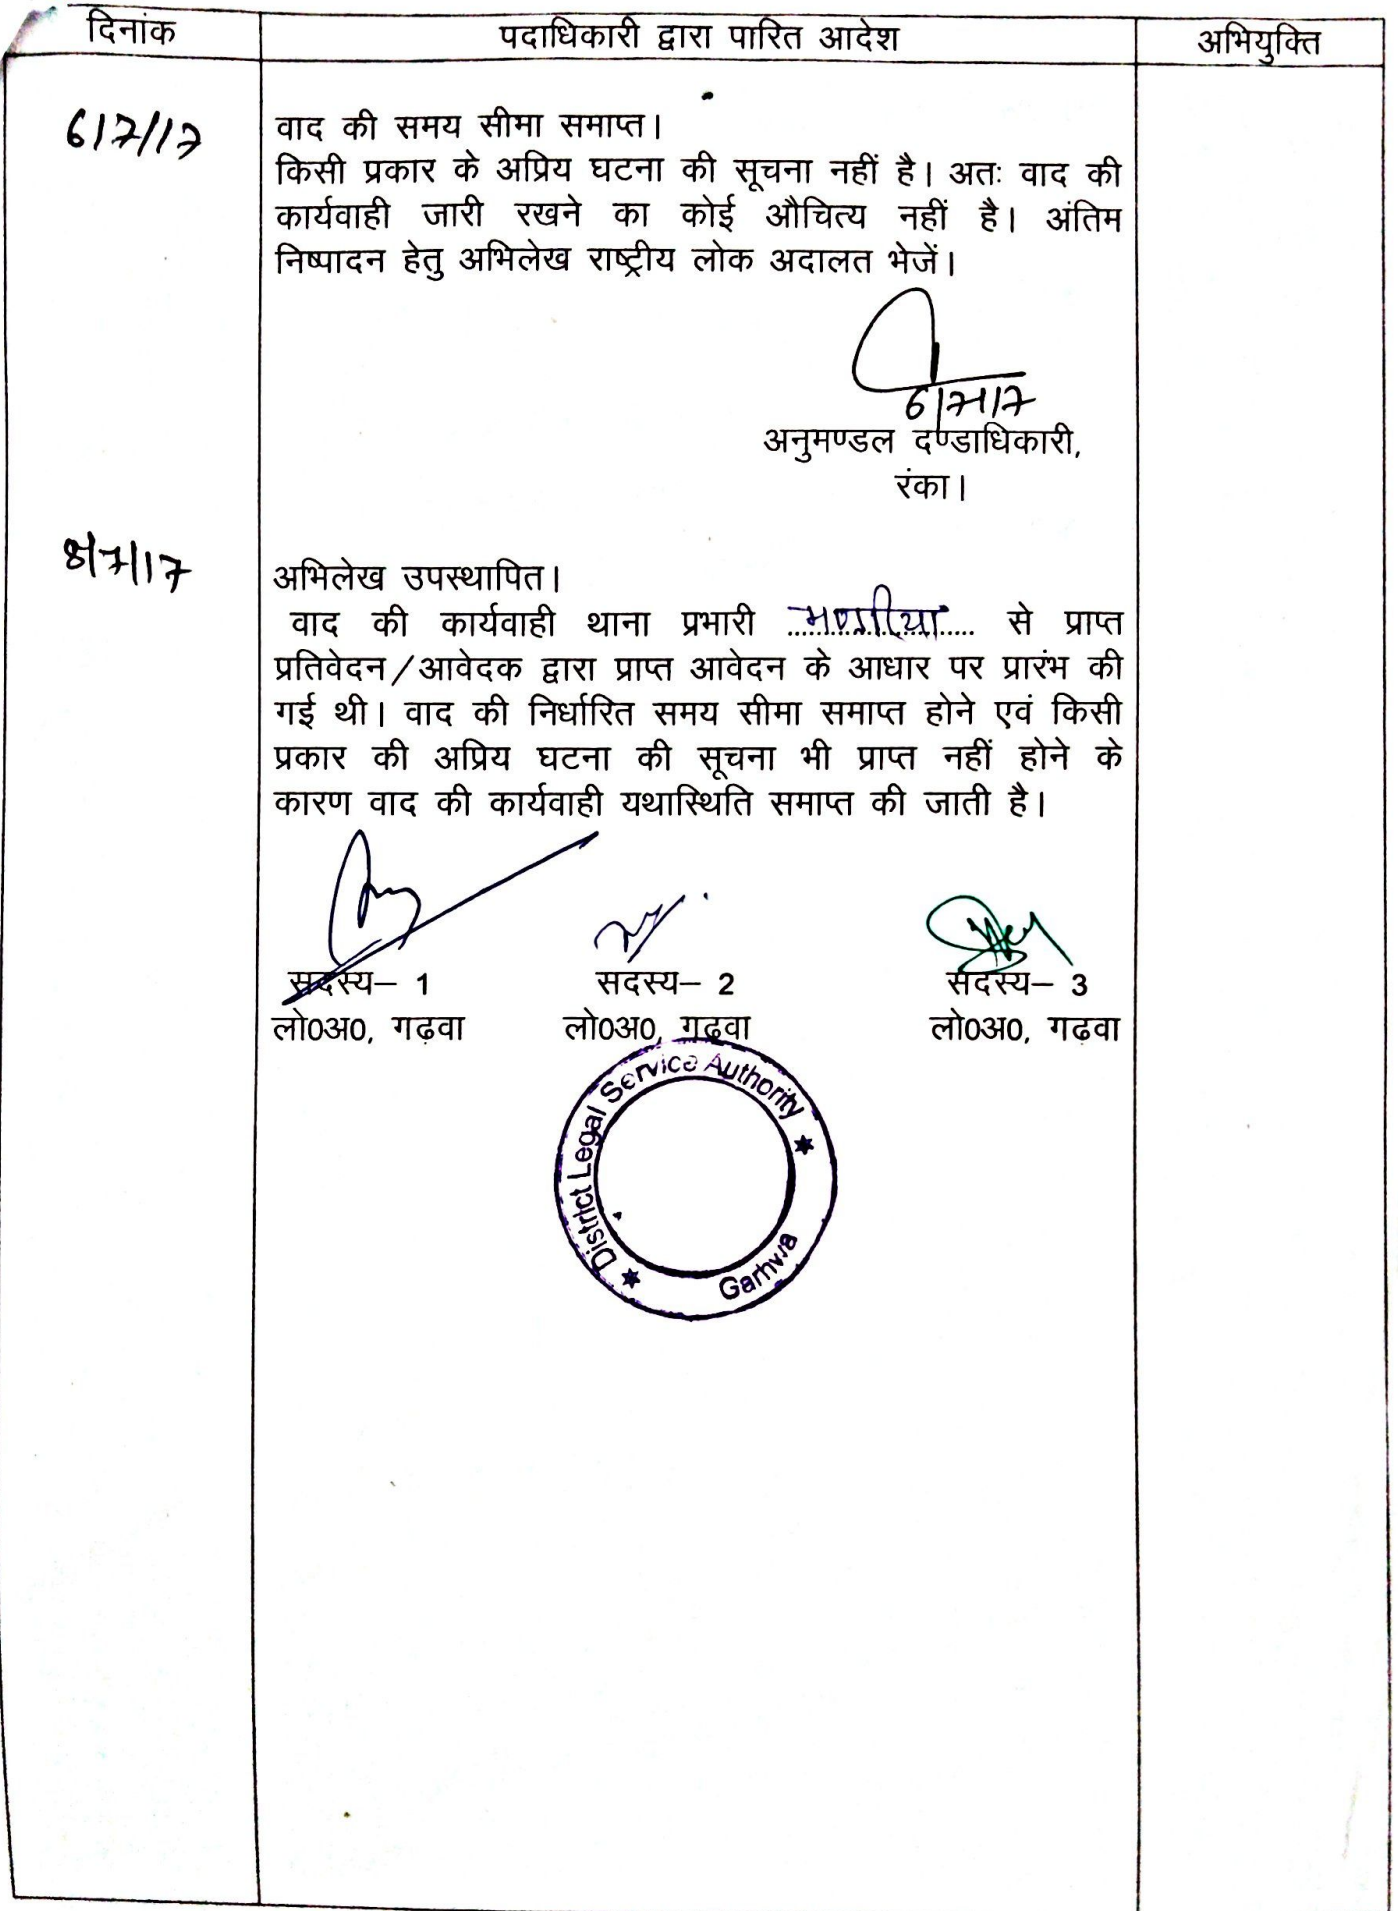 दिनांक पदाधिकारी द्वारा पारित आदेश अभियुक्ति
6/7/17
वाद की समय सीमा समाप्त।
किसी प्रकार के अप्रिय घटना की सूचना नहीं है। अतः वाद की
कार्यवाही जारी रखने का कोई औचित्य नहीं है। अंतिम
निष्पादन हेतु अभिलेख राष्ट्रीय लोक अदालत भेजें।
6/7/17
अनुमण्डल दण्डाधिकारी,
रंका।
8/7/17
अभिलेख उपस्थापित।
वाद की कार्यवाही थाना प्रभारी से प्राप्त
प्रतिवेदन/आवेदक द्वारा प्राप्त आवेदन के आधार पर प्रारंभ की
गई थी। वाद की निर्धारित समय सीमा समाप्त होने एवं किसी
प्रकार की अप्रिय घटना की सूचना भी प्राप्त नहीं होने के
कारण वाद की कार्यवाही यथास्थिति समाप्त की जाती है।
सदस्य– 1 सदस्य– 2 सदस्य– 3
लो0अ0, गढ़वा लो0अ0, गढ़वा लो0अ0, गढ़वा
District Legal Service Authority
Garhwa